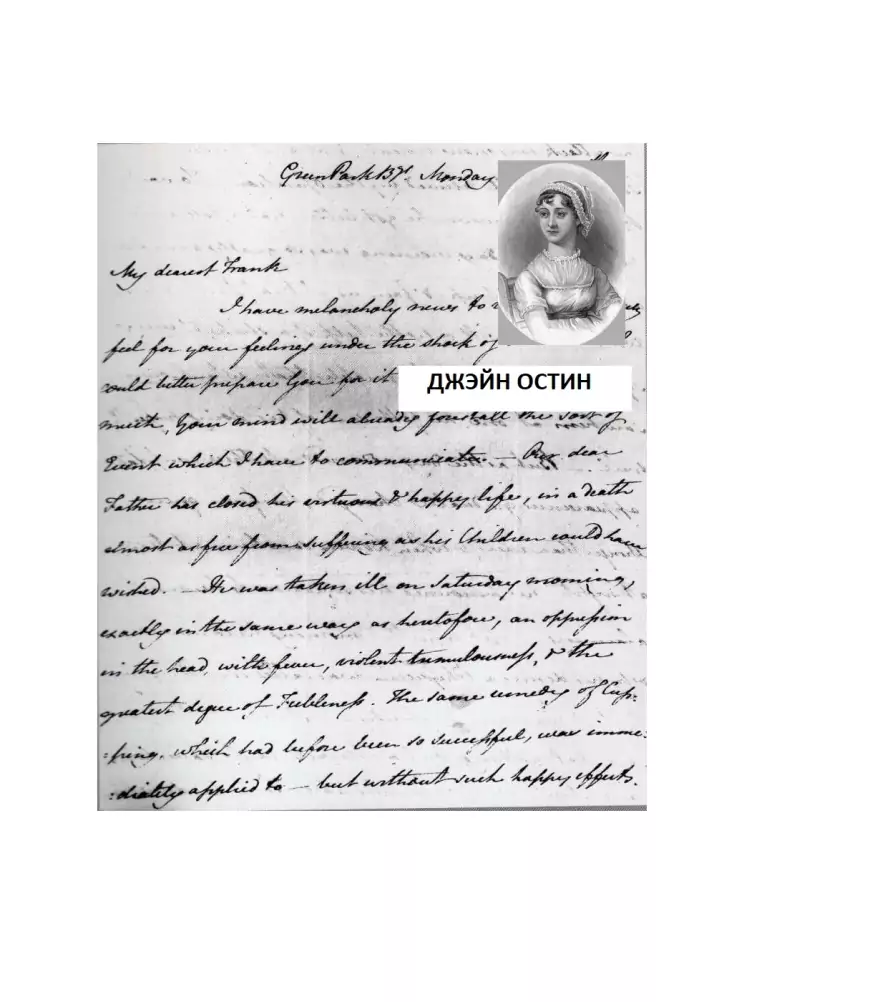 Green Park Bgs. Monday
My dearest Frank
I have melancholy news to
feel for your feelings under the shock of
could better prepare You for it
ДЖЭЙН ОСТИН
much, Your mind will already forestall the sort of
Event which I have to communicate. — Our dear
Father has closed his virtuous & happy life, in a death
almost as free from suffering as his Children could have
wished. — He was taken ill on Saturday morning,
exactly in the same way as heretofore, an oppression
in the head, with fever, violent tremulousness, & the
greatest degree of Feebleness. The same remedy of Cup-
:ping, which had before been so successful, was imme:
:diately applied to — but without such happy effects.